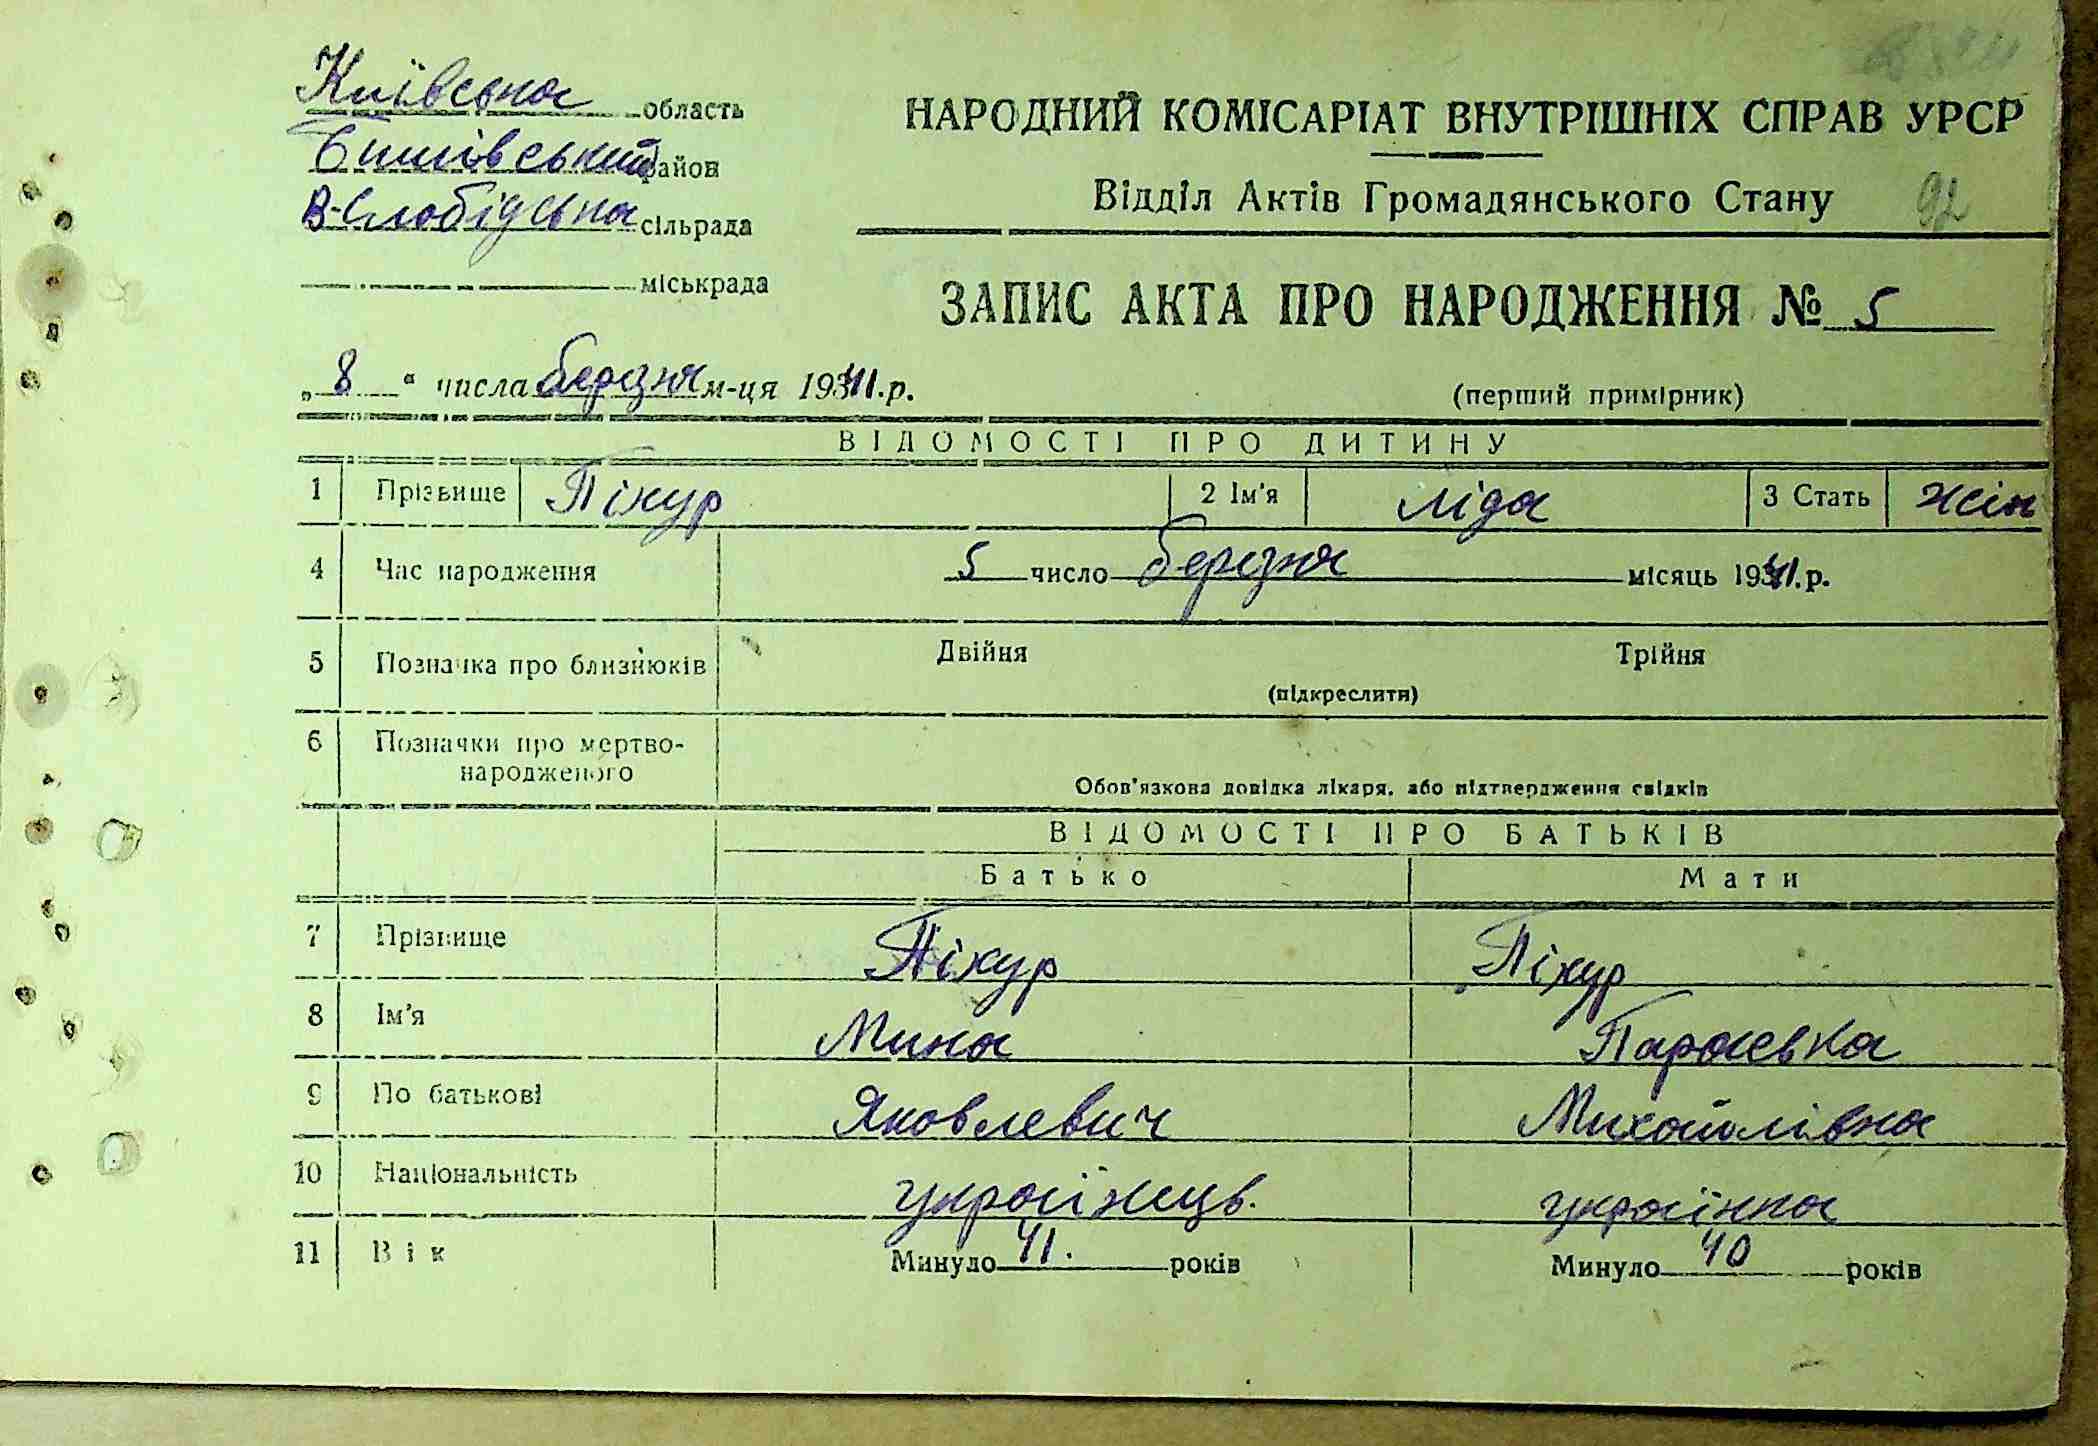 Київська область
Бишівський район
В-Слобідська сільрада
міськрада
НАРОДНИЙ КОМІСАРІАТ ВНУТРІШНІХ СПРАВ УРСР
Відділ Актів Громадянського Стану 92
ЗАПИС АКТА ПРО НАРОДЖЕННЯ № 5
„ 8 “ числа березня м-ця 1941 р.
(перший примірник)
ВІДОМОСТІ ПРО ДИТИНУ
1 Прізвище Пікур 2 Ім'я Ліда 3 Стать жін
4 Час народження 5 число березня місяць 1941 р.
5 Позначка про близнюків Двійня Трійня
(підкреслити)
6 Позначки про мертво-
народженого
Обов'язкова довідка лікаря, або підтвердження свідків
ВІДОМОСТІ ПРО БАТЬКІВ
Батько Мати
7 Прізвище Пікур Пікур
8 Ім'я Мина Параска
9 По батькові Яковлевич Михайлівна
10 Національність українець. українка
11 Вік Минуло 41. років Минуло 40 років